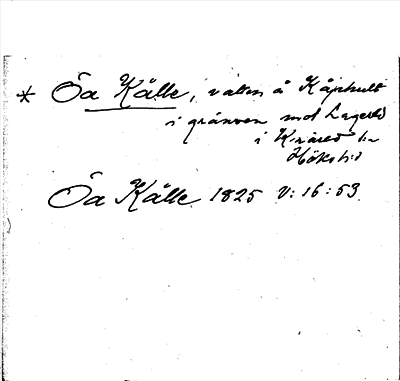 * Öa Källe, vatten å Kåphult
i gränsen mot Lagered
i Knäred sn
Höks hd
Öa Källe 1825 V: 16: 53